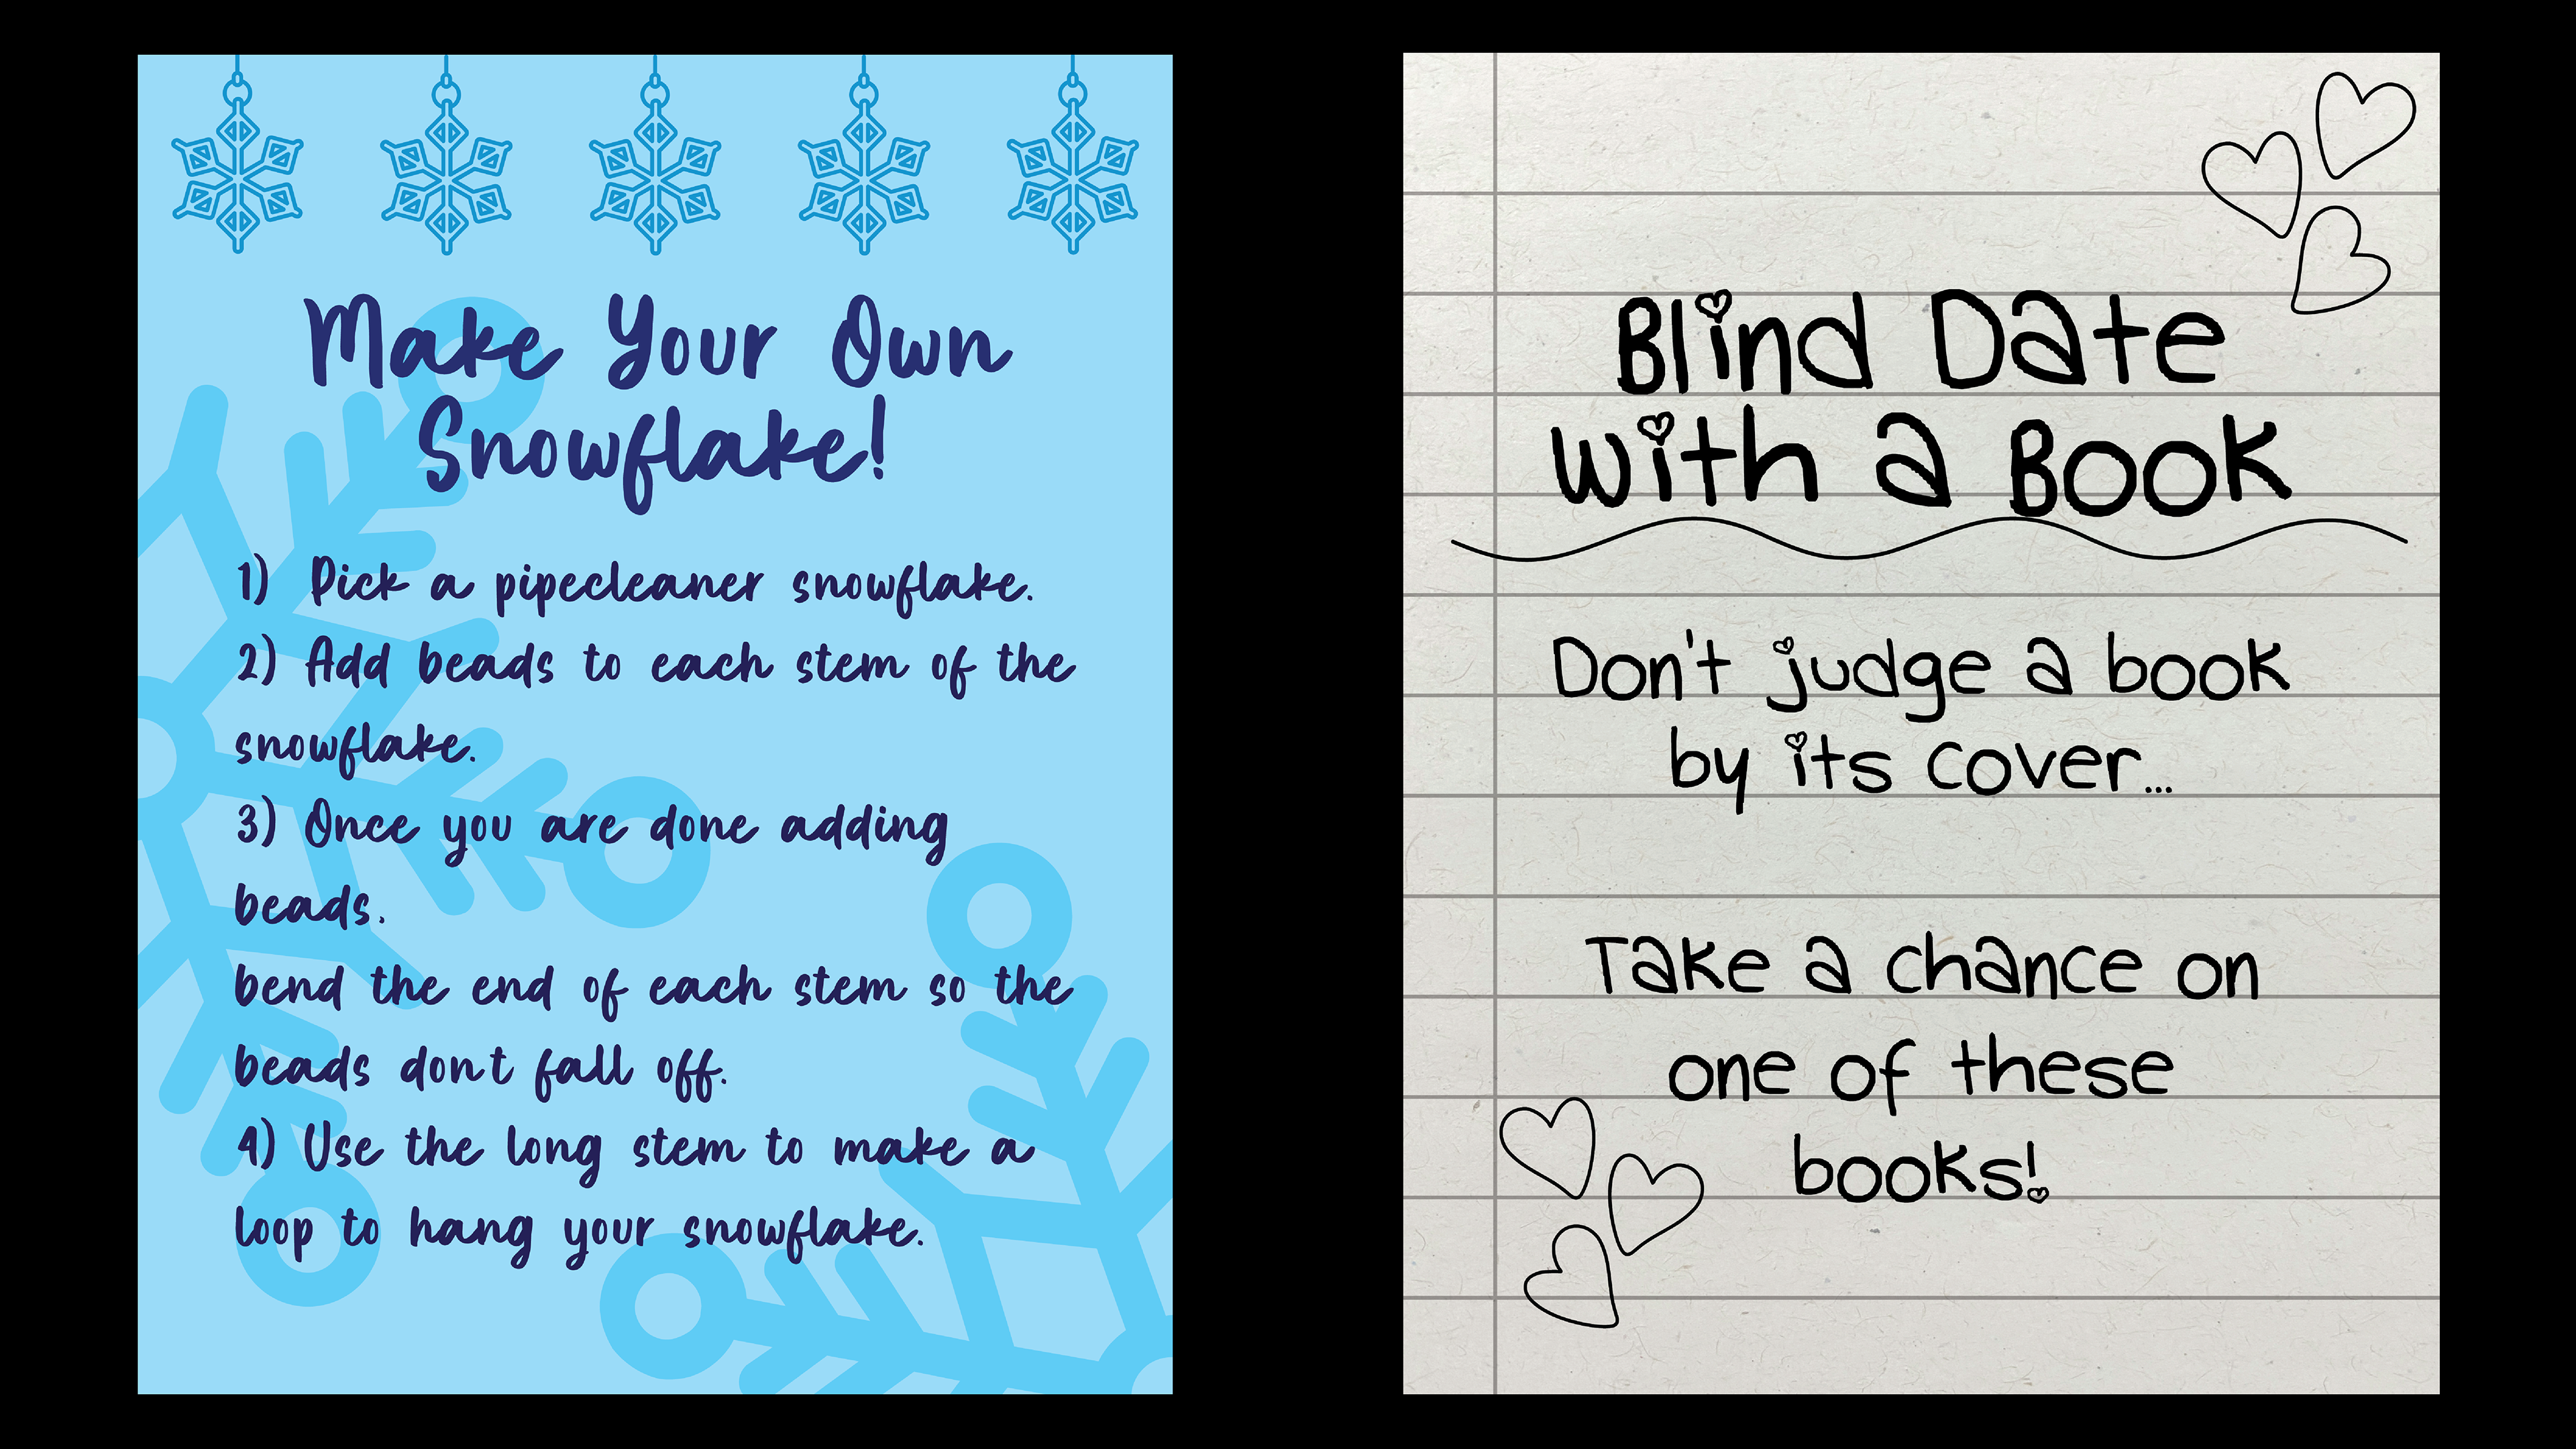 Make Your Own
Snowflake!
1) Pick a pipecleaner snowflake.
2) Add beads to each stem of the
snowflake.
3) Once you are done adding
beads.
bend the end of each stem so the
beads don't fall off.
4) Use the long stem to make a
loop to hang your snowflake.
Blind Date
with a Book
Don't judge a book
by its cover...
Take a chance on
one of these
books!